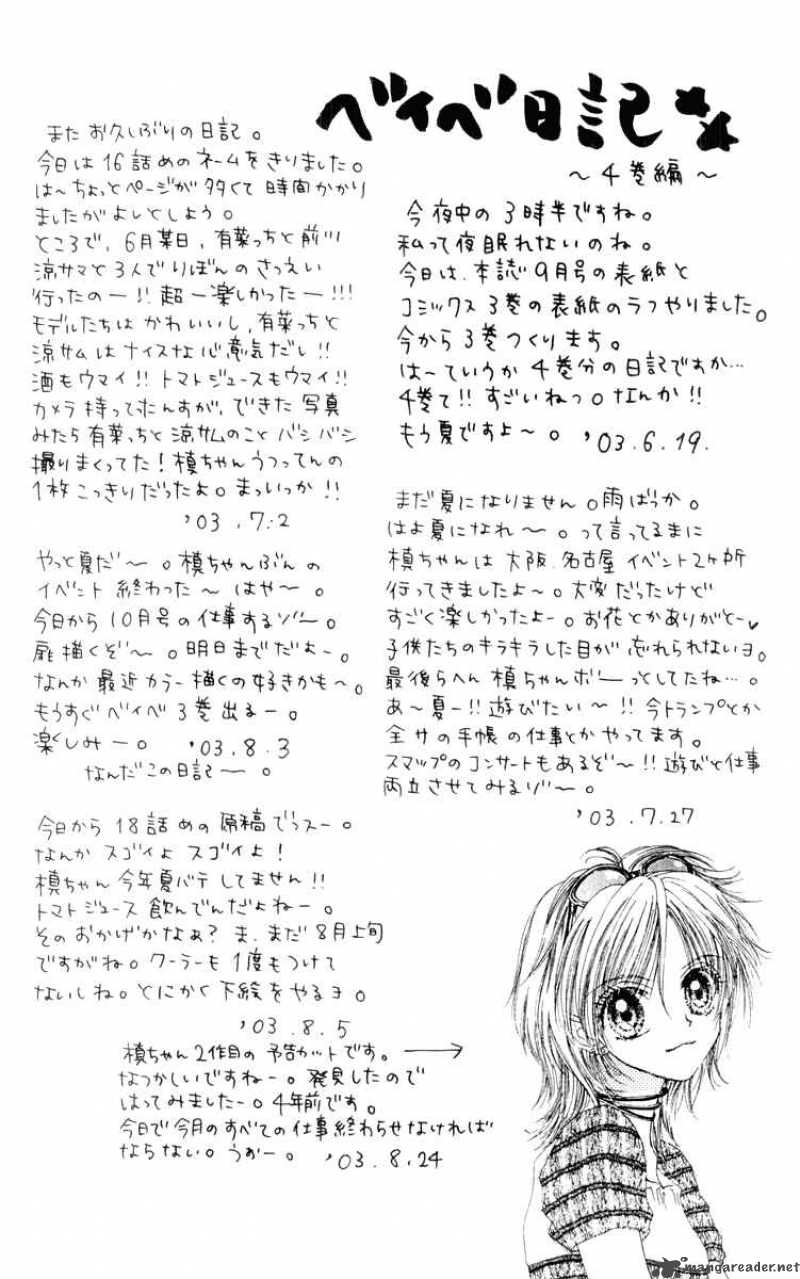 ベイベ日記
～4巻編～
今夜中の3時半ですね。
私って夜眠れないのね。
今日は、本誌9月号の表紙と
コミックス3巻の表紙のラフやりました。
今から3巻つくります。
は～ていうか4巻分の日記ですか…
4巻て!!すごいねっ。なんか!!
もう夏ですよ～。'03.6.19.
まだ夏になりません。雨ばっか。
はよ夏になれ～。って言ってるまに
槙ちゃんは大阪、名古屋イベント2ヶ所
行ってきましたよ～。大変だったけど
すごく楽しかったよー。お花とかありがとー♥
子供たちのキラキラした目が忘れられないヨ。
最後らへん槙ちゃんボーっとしてたね…。
あ～夏ー!!遊びたい～!!今トランプとか
全サの手帳の仕事とかやってます。
スマップのコンサートもあるぞ～!!遊びと仕事
両立させてみるゾ～。
'03.7.27
また お久しぶりの日記。
今日は16話めのネームをきりました。
は～ちょっとページが多くて時間かかり
ましたがよいとしよう。
ところで、6月某日、有菜っちと前川
涼サマと3人でりぼんのさつえい
行ったのー!!超ー楽しかったー!!!
モデルたちはかわいいし、有菜っちと
涼サムはナイスな心意気だし!!
酒もウマイ!!トマトジュースもウマイ!!
カメラ持ってたんすが、できた写真
みたら有菜っちと涼サムのことバシバシ
撮りまくってた!槙ちゃんうつってんの
1枚こっきりだったよ。まっいっか!!
'03.7.2
やっと夏だ～。槙ちゃんぶんの
イベント終わった～はや～。
今日から10月号の仕事するゾ～。
扉描くぞ～。明日までだよー。
なんか最近カラー描くの好きかも～。
もうすぐベイベ3巻出るー。
楽しみー。'03.8.3
なんだこの日記ー。
今日から18話めの原稿でっスー。
なんかスゴイよスゴイよ!
槙ちゃん今年夏バテしてません!!
トマトジュース飲んでんだよねー。
そのおかげかなぁ?ま、まだ8月上旬
ですがね。クーラーも1度もつけて
ないしね。とにかく下絵をやるヨ。
'03.8.5
槙ちゃん2作目の予告カットです。→
なつかしいですねー。発見したので
はってみましたー。4年前です。
今日で今月のすべての仕事終わらせなければ
ならない。うおー。'03.8.24
mangareader.net